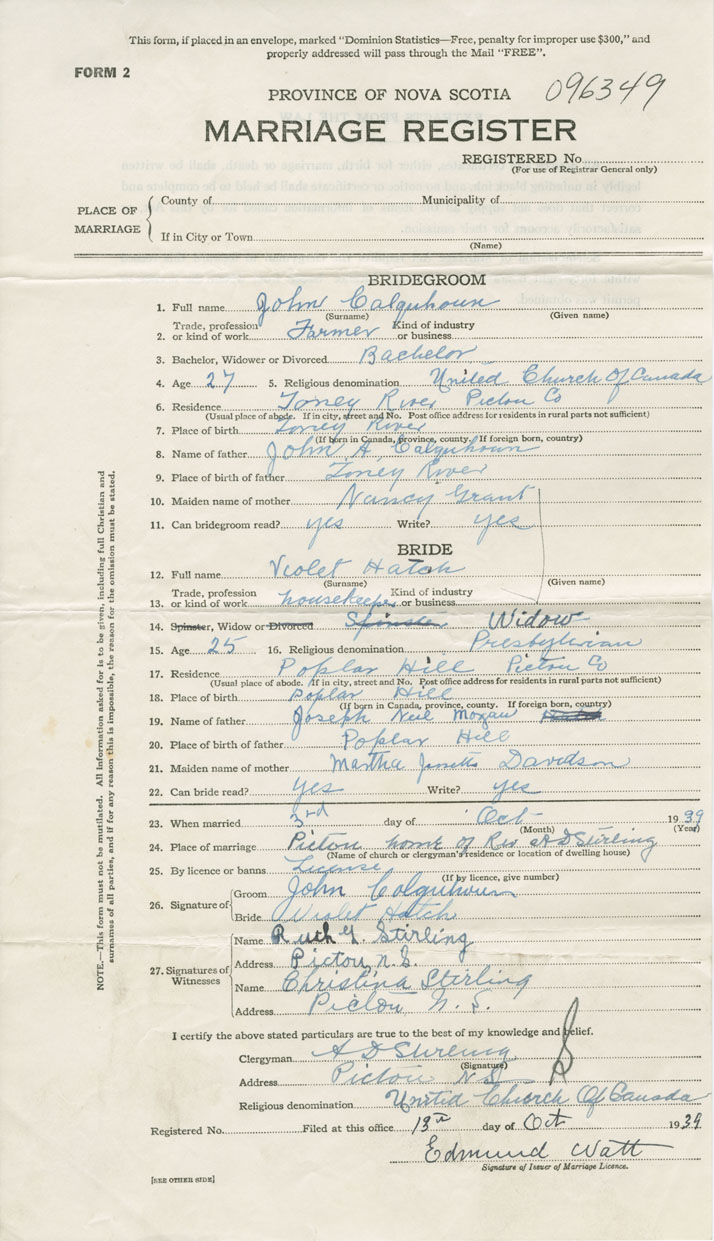 This form, if placed in an envelope, marked "Dominion Statistics—Free, penalty for improper use $300," and
properly addressed will pass through the Mail "FREE".
FORM 2
PROVINCE OF NOVA SCOTIA 096349
MARRIAGE REGISTER
REGISTERED No.
(For use of Registrar General only)
PLACE OF MARRIAGE
County of Municipality of
If in City or Town
(Name)
BRIDEGROOM
1. Full name John Colquhoun
(Surname) (Given name)
2. Trade, profession or kind of work Farmer Kind of industry or business
3. Bachelor, Widower or Divorced Bachelor
4. Age 27 5. Religious denomination United Church Of Canada
6. Residence Toney River Pictou Co
(Usual place of abode. If in city, street and No. Post office address for residents in rural parts not sufficient)
7. Place of birth Toney River
(If born in Canada, province, county. If foreign born, country)
8. Name of father John A. Colquhoun
9. Place of birth of father Toney River
10. Maiden name of mother Nancy Grant
11. Can bridegroom read? yes Write? yes
BRIDE
12. Full name Violet Hatch
(Surname) (Given name)
13. Trade, profession or kind of work housekeeper Kind of industry or business
14. Spinster, Widow or Divorced Spinster Widow
15. Age 25 16. Religious denomination Presbyterian
17. Residence Poplar Hill Pictou Co
(Usual place of abode. If in city, street and No. Post office address for residents in rural parts not sufficient)
18. Place of birth Poplar Hill
(If born in Canada, province, county. If foreign born, country)
19. Name of father Joseph Neil Mozan
20. Place of birth of father Poplar Hill
21. Maiden name of mother Martha Davidson
22. Can bride read? yes Write? yes
23. When married 3rd day of Oct 1939
(Month) (Year)
24. Place of marriage Pictou home of Rev A D Stirling
(Name of church or clergyman's residence or location of dwelling house)
25. By licence or banns License
(If by licence, give number)
26. Signature of
Groom John Colquhoun
Bride Violet Hatch
27. Signatures of Witnesses
Name Ruth Y. Stirling
Address Pictou, N.S.
Name Christina Stirling
Address Pictou, N. S.
I certify the above stated particulars are true to the best of my knowledge and belief.
Clergyman A D Stirling
(Signature)
Address Pictou N S
Religious denomination United Church Of Canada
Registered No. Filed at this office 13th day of Oct 1939
Edmund Watt
Signature of Issuer of Marriage Licence.
[SEE OTHER SIDE]
NOTE.—This form must not be mutilated. All information asked for is to be given, including full Christian and
surnames of all parties, and if for any reason this is impossible, the reason for the omission must be stated.